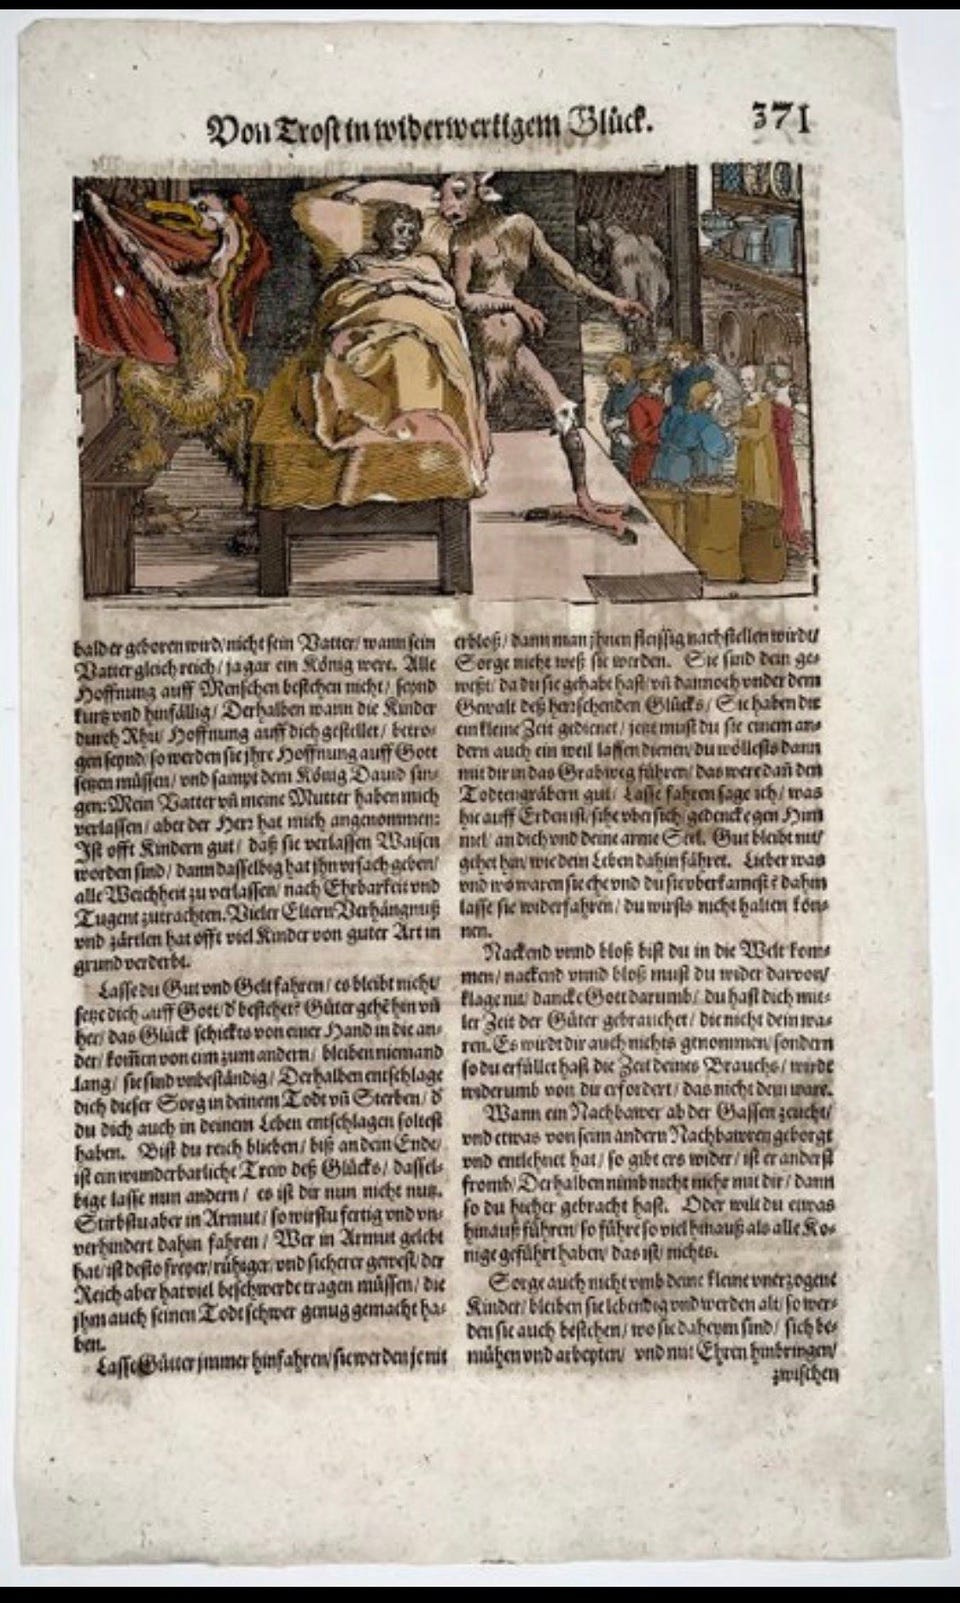 Von Trost in widerwertigem Glück.
371
bald er geboren wird/ nicht sein Vatter/ wann sein
Vatter gleich reich/ ja gar ein König were. Alle
Hoffnung auff Menschen bestehen nicht/ seynd
kurtz vnd hinfällig/ Derhalben wann die Kinder
durch Rhu/ Hoffnung auff dich gestellet/ betro-
gen seynd/ so werden sie jhre Hoffnung auff Gott
setzen müssen/ vnd sampt dem König Dauid sin-
gen: Mein Vatter vñ meine Mutter haben mich
verlassen/ aber der Herr hat mich angenommen:
Ist offt Kindern gut/ daß sie verlassen Waisen
worden sind/ dann dasselbig hat jhn vrsach geben/
alle Weichheit zu verlassen/ nach Ehrbarkeit vnd
Tugent zutrachten. Vieler Eltern Verhängnuß
vnd zärtlen hat offt viel Kinder von guter Art in
grund verderbt.
Lasse du Gut vnd Gelt fahren/ es bleibt nicht/
setze dich auff Gott/ d' bestehet: Güter gehẽ hin vñ
her/ das Glück schickts von einer Hand in die an-
der/ kom̃en von eim zum andern/ bleiben niemand
lang/ sie sind vnbeständig/ Derhalben entschlage
dich dieser Sorg in deinem Todt vñ Sterben/ d'
du dich auch in deinem Leben entschlagen soltest
haben. Bist du reich blieben/ biß an dein Ende/
ist ein wunderbarliche Trew deß Glücks/ dassel-
bige lasse nun andern/ es ist dir nun nicht nutz.
Stirbstu aber in Armut/ so wirstu fertig vnd vn-
verhindert dahin fahren/ Wer in Armut gelebt
hat/ ist desto freyer/ rühiger/ vnd sicherer gewest/ der
Reich aber hat viel beschwerde tragen müssen/ die
jhm auch seinen Todt schwer genug gemacht ha-
ben.
Lasse Gütter jmmer hinfahren/ sie werden je nit
erbloß/ dann man jhnen fleissig nachstellen wirdt/
Sorge nicht weß sie werden. Sie sind dein ge-
weßt/ da du sie gehabt hast/ vñ dannoch vnder dem
Gewalt deß herrschenden Glücks/ Sie haben dir
ein kleine Zeit gedienet/ jetzt must du sie einem an-
dern auch ein weil lassen dienen/ du wöllests dann
mit dir in das Grab weg führen/ das were dañ den
Todtengräbern gut/ Lasse fahren sage ich/ was
hie auff Erden ist/ sihe vber sich/ gedencke gen Him
mel/ an dich vnd deine arme Seel. Gut bleibt nit/
gehet hin/ wie dein Leben dahin fähret. Lieber was
vnd wo waren sie ehe vnd du sie vberkamest? dahin
lasse sie widerfahren/ du wirsts nicht halten kön-
nen.
Nackend vnnd bloß bist du in die Welt kom-
men/ nackend vnnd bloß must du wider darvon/
klage nit/ dancke Gott darumb/ du hast dich mit-
ler Zeit der Güter gebrauchet/ die nicht dein wa-
ren. Es wirdt dir auch nichts genommen/ sondern
so du erfüllet hast die Zeit deines Brauchs/ wirdt
widerumb von dir erfordert/ das nicht dein ware.
Wann ein Nachbawer ab der Gassen zeucht/
vnd etwas von seim andern Nachbawren geborgt
vnd entlehnet hat/ so gibt ers wider/ ist er anderst
fromb/ Derhalben nimb nicht mehr mit dir/ dann
so du hieher gebracht hast. Oder wilt du etwas
hinauß führen/ so führe so viel hinauß als alle Kö-
nige geführt haben/ das ist/ nichts.
Sorge auch nicht vmb deine kleine vnerzogene
Kinder/ bleiben sie lebendig vnd werden alt/ so wer-
den sie auch bestehen/ wo sie daheym sind/ sich be-
mühen vnd arbeyten/ vnd mit Ehren hinbringen/
zwischen